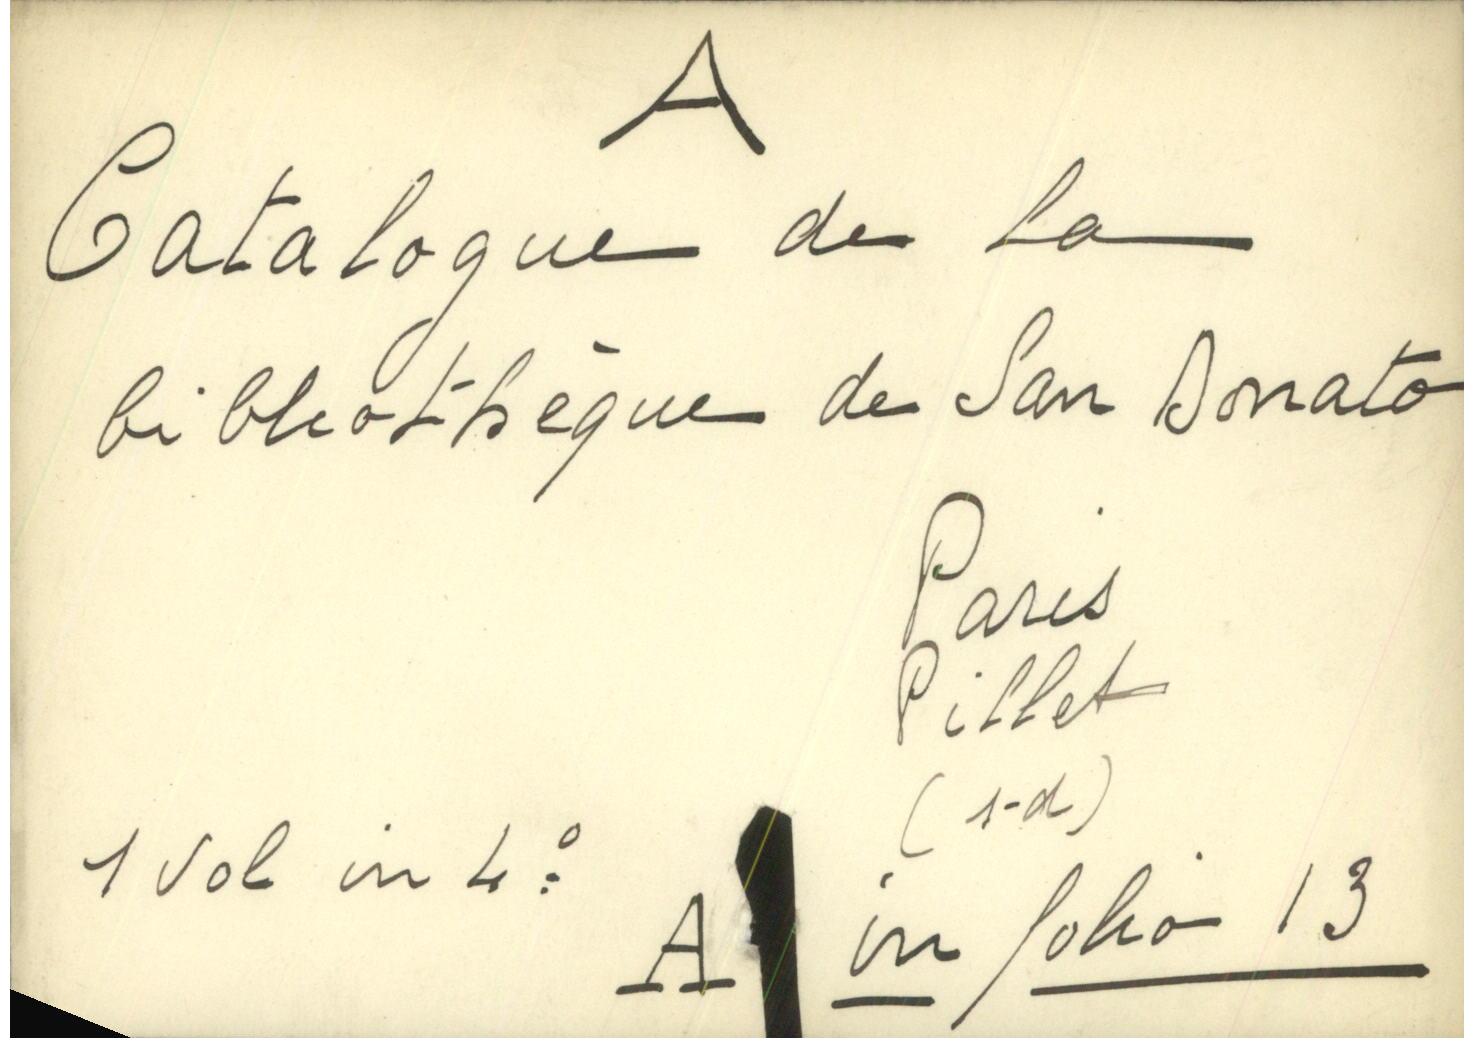 A
Catalogue de la
bibliothèque de San Donato
Paris
Pillet
(s-d)
1 vol in 4°
A in folio 13